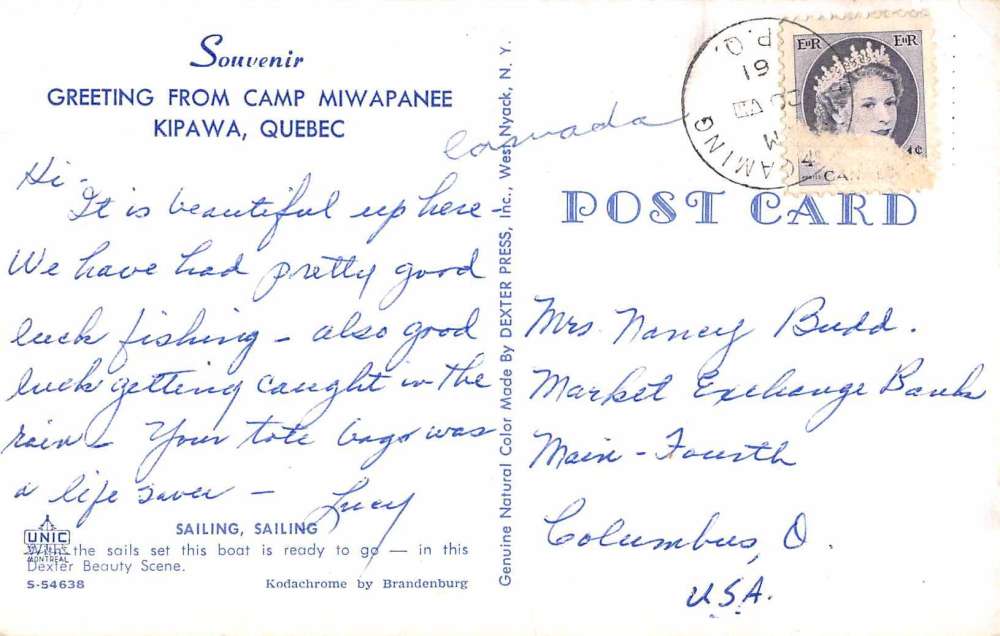 Souvenir
GREETING FROM CAMP MIWAPANEE
KIPAWA, QUEBEC
Canada
Hi -
It is beautiful up here -
We have had pretty good
luck fishing - also good
luck getting caught in the
rain - Your tote bags was
a life saver -
Lucy
SAILING, SAILING
With the sails set this boat is ready to go — in this
Dexter Beauty Scene.
S-54638
Kodachrome by Brandenburg
UNIC
MONTREAL
Genuine Natural Color Made By DEXTER PRESS, Inc., West Nyack, N. Y.
P.Q.
61
VII
M
AMING
EIIR EIIR
4¢
POST CARD
Mrs Nancy Budd.
Market Exchange Bank
Main - Fourth
Columbus, O.
USA.